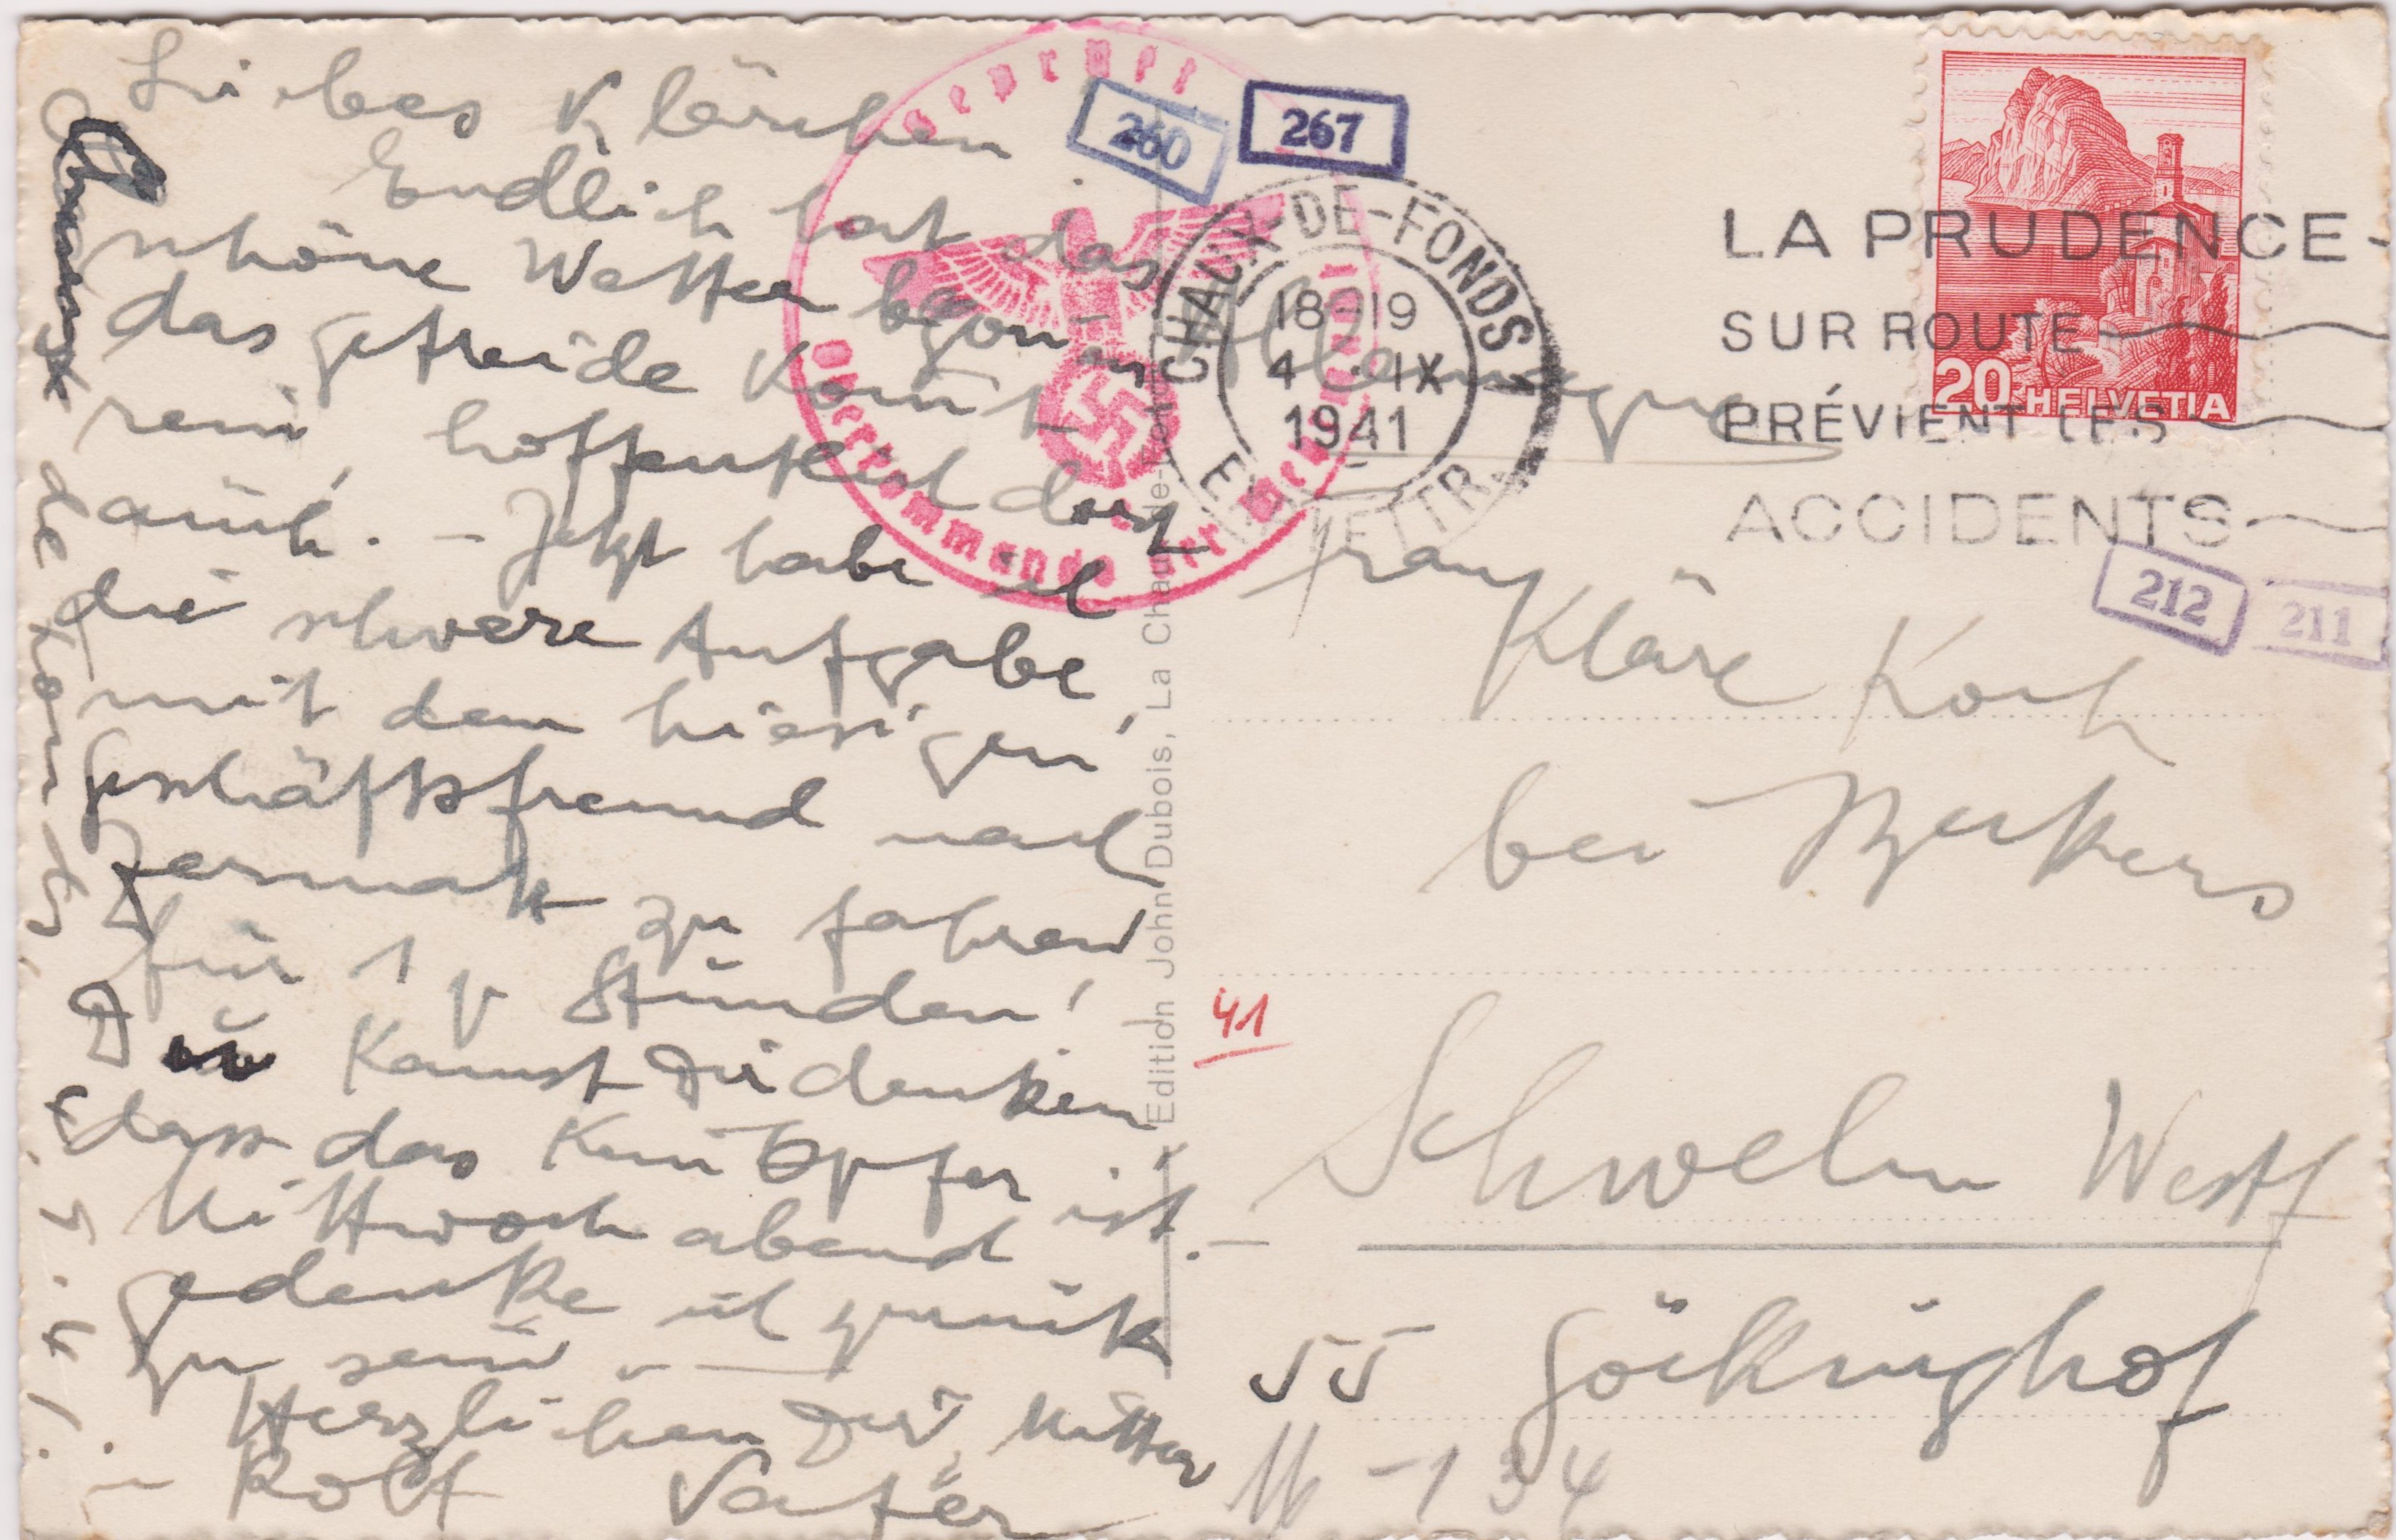 Liebes Klärchen
Endlich hat das
schöne Wetter begonnen
das getreide kommt
rein, hoffentlich dort
auch. - Jetzt habe ich
die schwere Aufgabe,
mit dem hiesigen
Geschäftsfreund nach
Zermatt zu fahren
für 1 Stunden!
Du kannst Dir denken
dass das kein Opfer ist. -
Mittwoch abend
gedenke ich zurück
zu sein. -
Herzlichen Dir, Mutter
Rolf Vater
de Fonds, 4.
Geprüft
Oberkommando der Wehrmacht
260
267
CHAUX-DE-FONDS 1
18-19
4. IX
1941
LETTR.
LA PRUDENCE
SUR ROUTE
PRÉVIENT LES
ACCIDENTS
20 HELVETIA
212
211
Allemagne
Frau
Kläre Koch
bei
Schwelm Westf
Göckinghof
55
41
16 -134
Edition John Dubois, La Chaux-de-Fonds